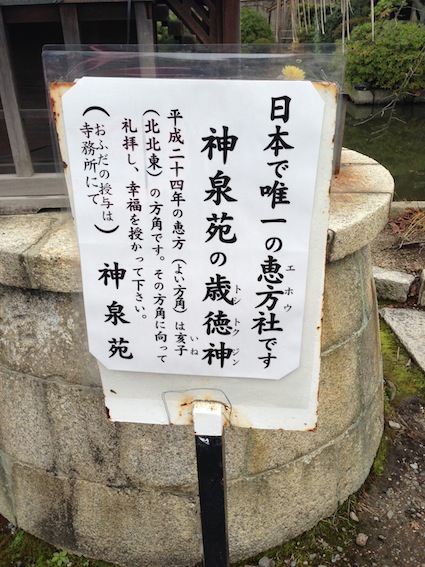 日本で唯一の恵方社です
エホウ
神泉苑の歳徳神
トシトクジン
平成二十四年の恵方(よい方角)は亥子
いね
(北北東)の方角です。その方角に向って
礼拝し、幸福を授かって下さい。
(おふだの授与は
寺務所にて)
神泉苑